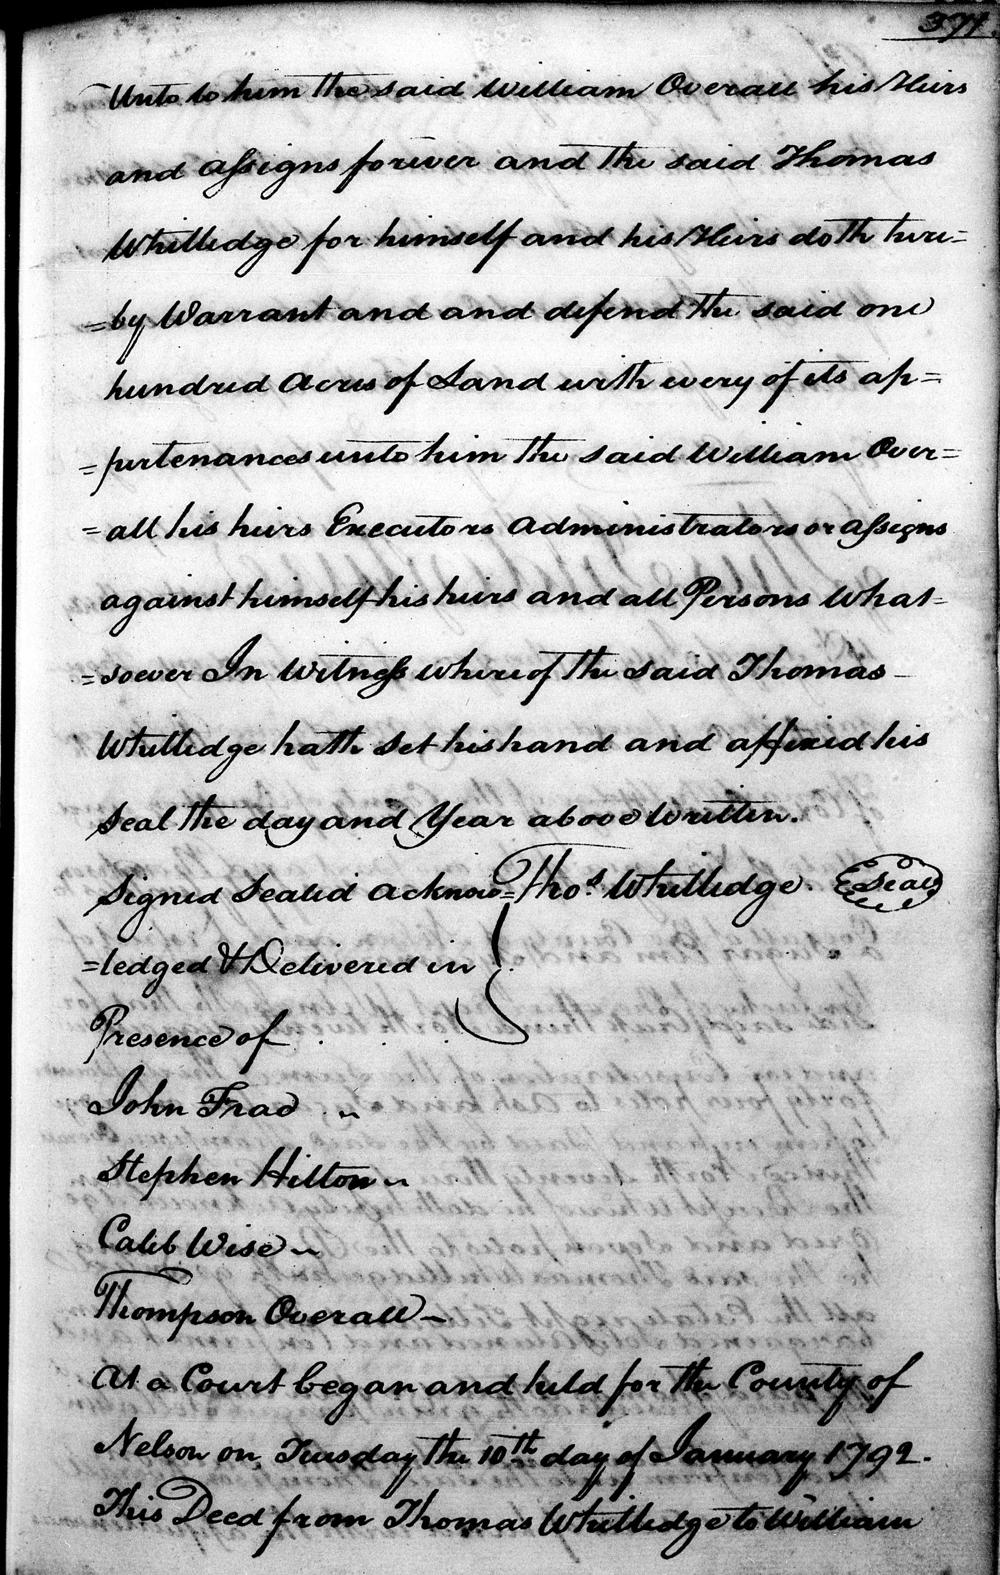 371.
Unto to him the said William Overall his Heirs
and assigns forever and the said Thomas
Whilledge for himself and his Heirs doth here=
=by Warrant and and defend the said one
hundred Acres of Land with every of its ap=
=purtenances unto him the said William Over=
=all his heirs Executors Administrators or assigns
against himself his heirs and all Persons What=
=soever In Witness whereof the said Thomas
Whilledge hath Set his hand and affixed his
Seal the day and Year above Written.
Signed Sealed Acknow= Thos. Whilledge. Seal
=ledged & Delivered in
Presence of
John
Stephen Hilton
Caleb Wise
Thompson Overall
At a Court began and held for the County of
Nelson on Tuesday the 10th day of January 1792.
This Deed from Thomas Whilledge to William